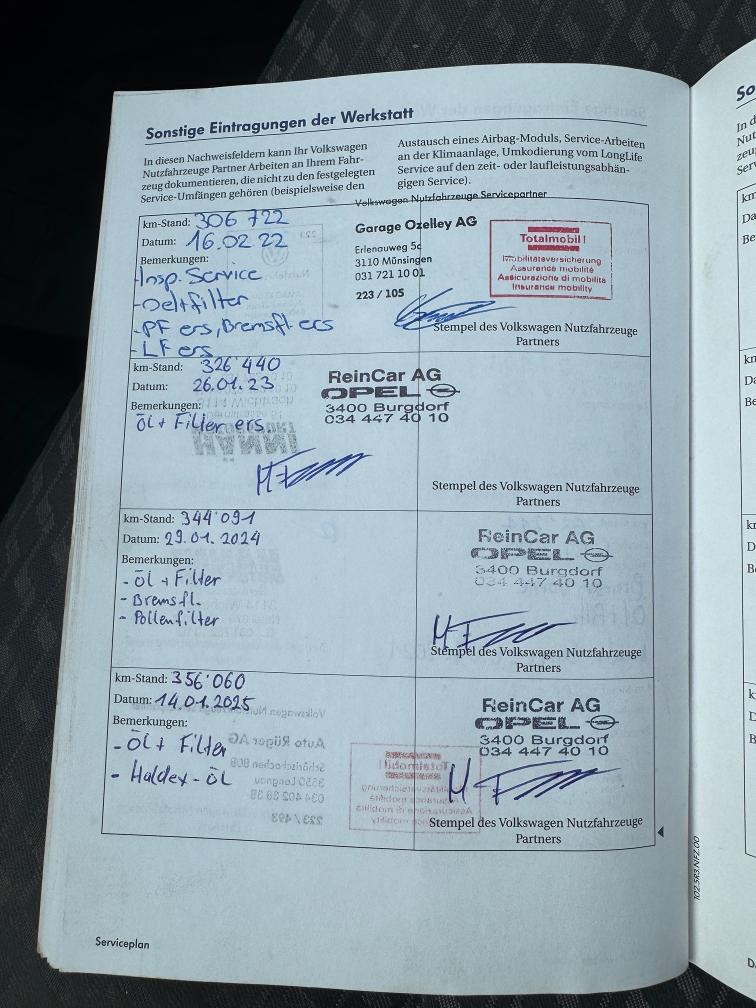 Sonstige Eintragungen der Werkstatt
In diesen Nachweisfeldern kann Ihr Volkswagen
Nutzfahrzeuge Partner Arbeiten an Ihrem Fahr-
zeug dokumentieren, die nicht zu den festgelegten
Service-Umfängen gehören (beispielsweise den
Austausch eines Airbag-Moduls, Service-Arbeiten
an der Klimaanlage, Umkodierung vom LongLife
Service auf den zeit- oder laufleistungsabhän-
gigen Service).
km-Stand: 306 722
Datum: 16.02.22
Bemerkungen:
-Insp. Service
-Oelfilter
-PF ers, Bremsfl. ers
-LF ers
Volkswagen Nutzfahrzeuge Servicepartner
Garage Ozelley AG
Erlenauweg 5c
3110 Münsingen
031 721 10 01
223 / 105
Totalmobil!
Mobilitätsversicherung
Assurance mobilité
Assicurazione di mobilità
Insurance mobility
Stempel des Volkswagen Nutzfahrzeuge
Partners
km-Stand: 326'440
Datum: 26.01.23
Bemerkungen:
Öl + Filter ers.
ReinCar AG
OPEL
3400 Burgdorf
034 447 40 10
Stempel des Volkswagen Nutzfahrzeuge
Partners
km-Stand: 344'091
Datum: 29.01.2024
Bemerkungen:
- Öl + Filter
- Bremsfl.
- Pollenfilter
ReinCar AG
OPEL
3400 Burgdorf
034 447 40 10
Stempel des Volkswagen Nutzfahrzeuge
Partners
km-Stand: 356'060
Datum: 14.01.2025
Bemerkungen:
- Öl + Filter
- Haldex-Öl
ReinCar AG
OPEL
3400 Burgdorf
034 447 40 10
Stempel des Volkswagen Nutzfahrzeuge
Partners
102.5R3.NFZ.00
Serviceplan